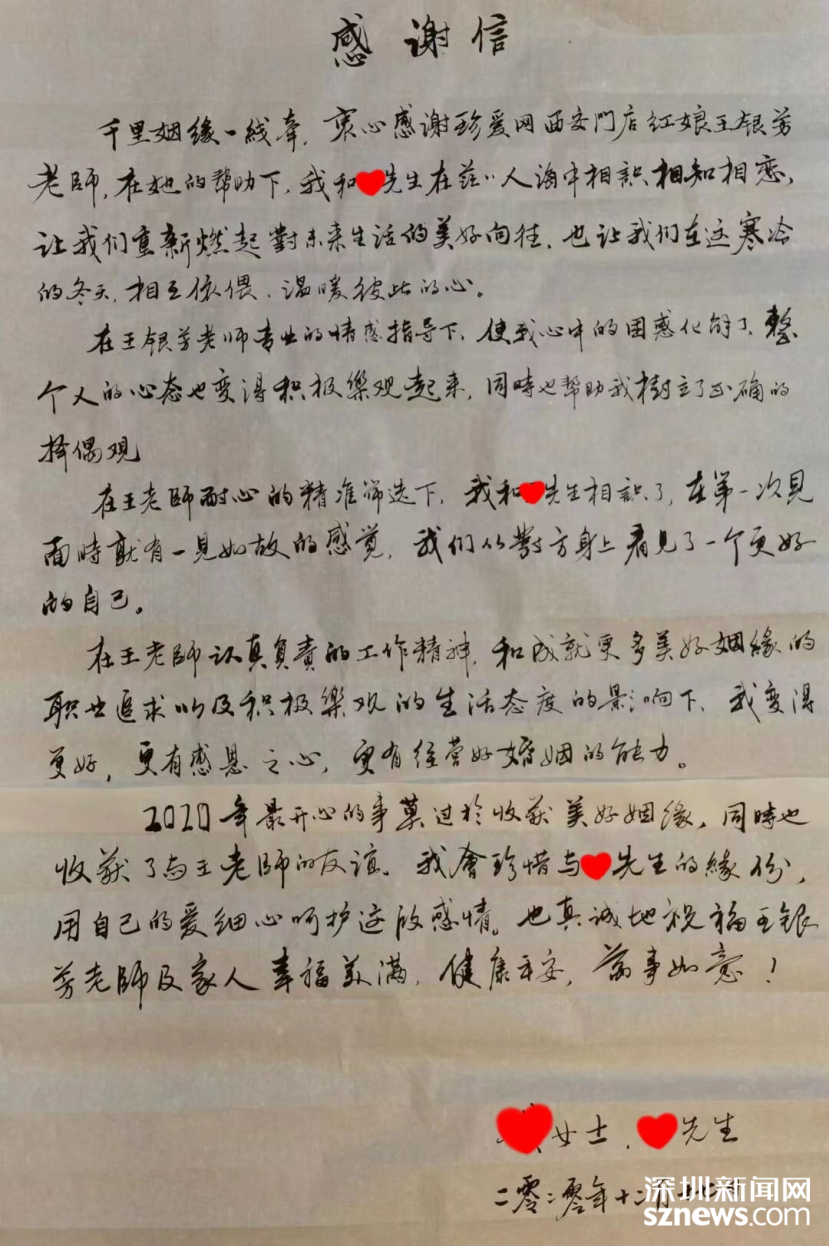 感谢信
千里姻缘一线牵，衷心感谢珍爱网西安門店红娘王银芳
老師，在她的帮助下，我和先生在茫〃人海中相識相知相恋，
让我们重新燃起對未来生活的美好向往，也让我们在这寒冷
的冬天，相互依偎，温暖彼此的心。
在王银芳老师专业的情感指导下，使我心中的困惑化解了，整
个人的心态也变得积极樂观起来，同時也帮助我樹立了正确的
择偶观
在王老師耐心的精准筛选下，我和先生相識了，在第一次見
面時就有一見如故的感觉，我们从對方身上看見了一个更好
的自己。
在王老師认真負責的工作精神，和成就更多美好姻缘的
职业追求以及积极樂观的生活态度的影响下，我变得
更好，更有感恩之心，更有经营好婚姻的能力。
2020年最开心的事莫过於收获美好姻缘，同時也
收获了与王老師的友谊。我會珍惜与先生的緣份，
用自己的爱细心呵护这段感情。也真诚地祝福王银
芳老師及家人幸福美满，健康平安，萬事如意！
女士、先生
二零二零年十二月
深圳新闻网
sznews.com